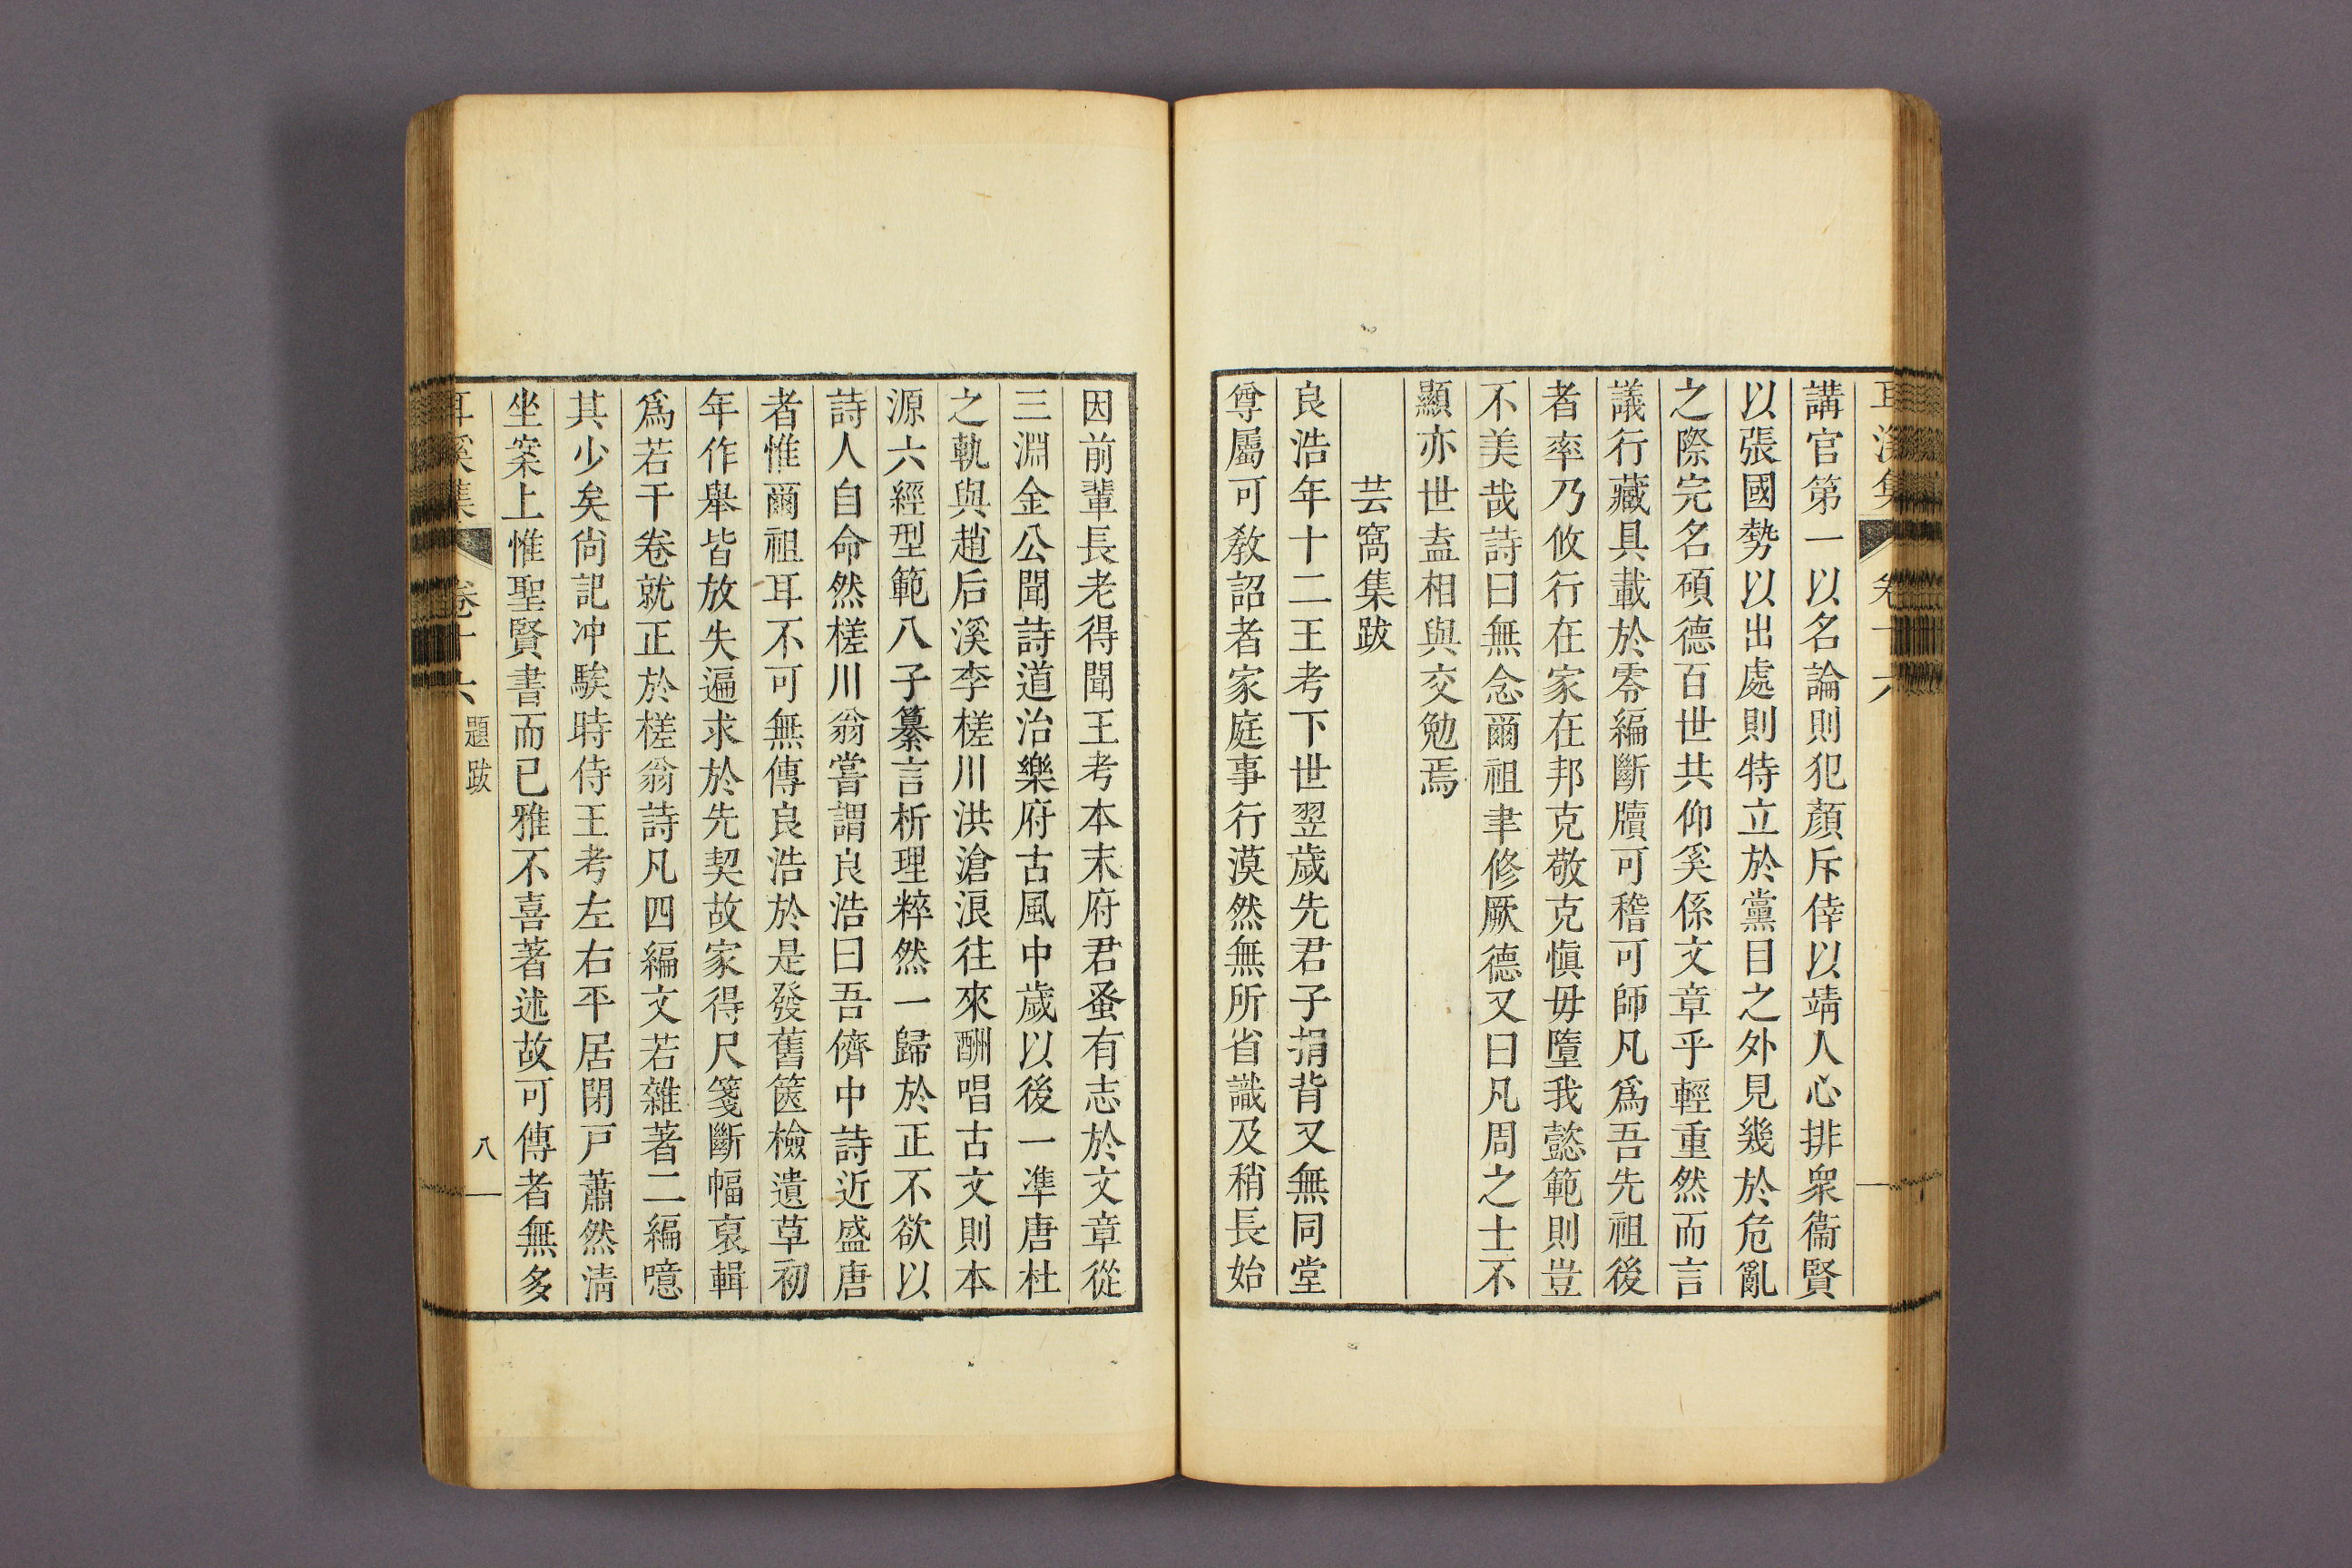 耳溪集 卷十六
講官第一以名論則犯顏斥倖以靖人心排衆衞賢
以張國勢以出處則特立於黨目之外見幾於危亂
之際完名碩德百世共仰奚係文章乎輕重然而言
議行藏具載於零編斷牘可稽可師凡爲吾先祖後
者率乃攸行在家在邦克敬克愼毋墮我懿範則豈
不美哉詩曰無念爾祖聿修厥德又曰凡周之士不
顯亦世盍相與交勉焉
芸窩集跋
良浩年十二王考下世翌歲先君子捐背又無同堂
尊屬可敎詔者家庭事行漠然無所省識及稍長始
因前輩長老得聞王考本末府君蚤有志於文章從
三淵金公聞詩道治樂府古風中歲以後一準唐杜
之軌與趙后溪李槎川洪滄浪往來酬唱古文則本
源六經型範八子纂言析理粹然一歸於正不欲以
詩人自命然槎川翁嘗謂良浩曰吾儕中詩近盛唐
者惟爾祖耳不可無傳良浩於是發舊篋檢遺草初
年作擧皆放失遍求於先契故家得尺箋斷幅裒輯
爲若干卷就正於槎翁詩凡四編文若雜著二編噫
其少矣尙記冲騃時侍王考左右平居閉戶蕭然淸
坐案上惟聖賢書而已雅不喜著述故可傳者無多
耳溪集 卷十六 題跋 八